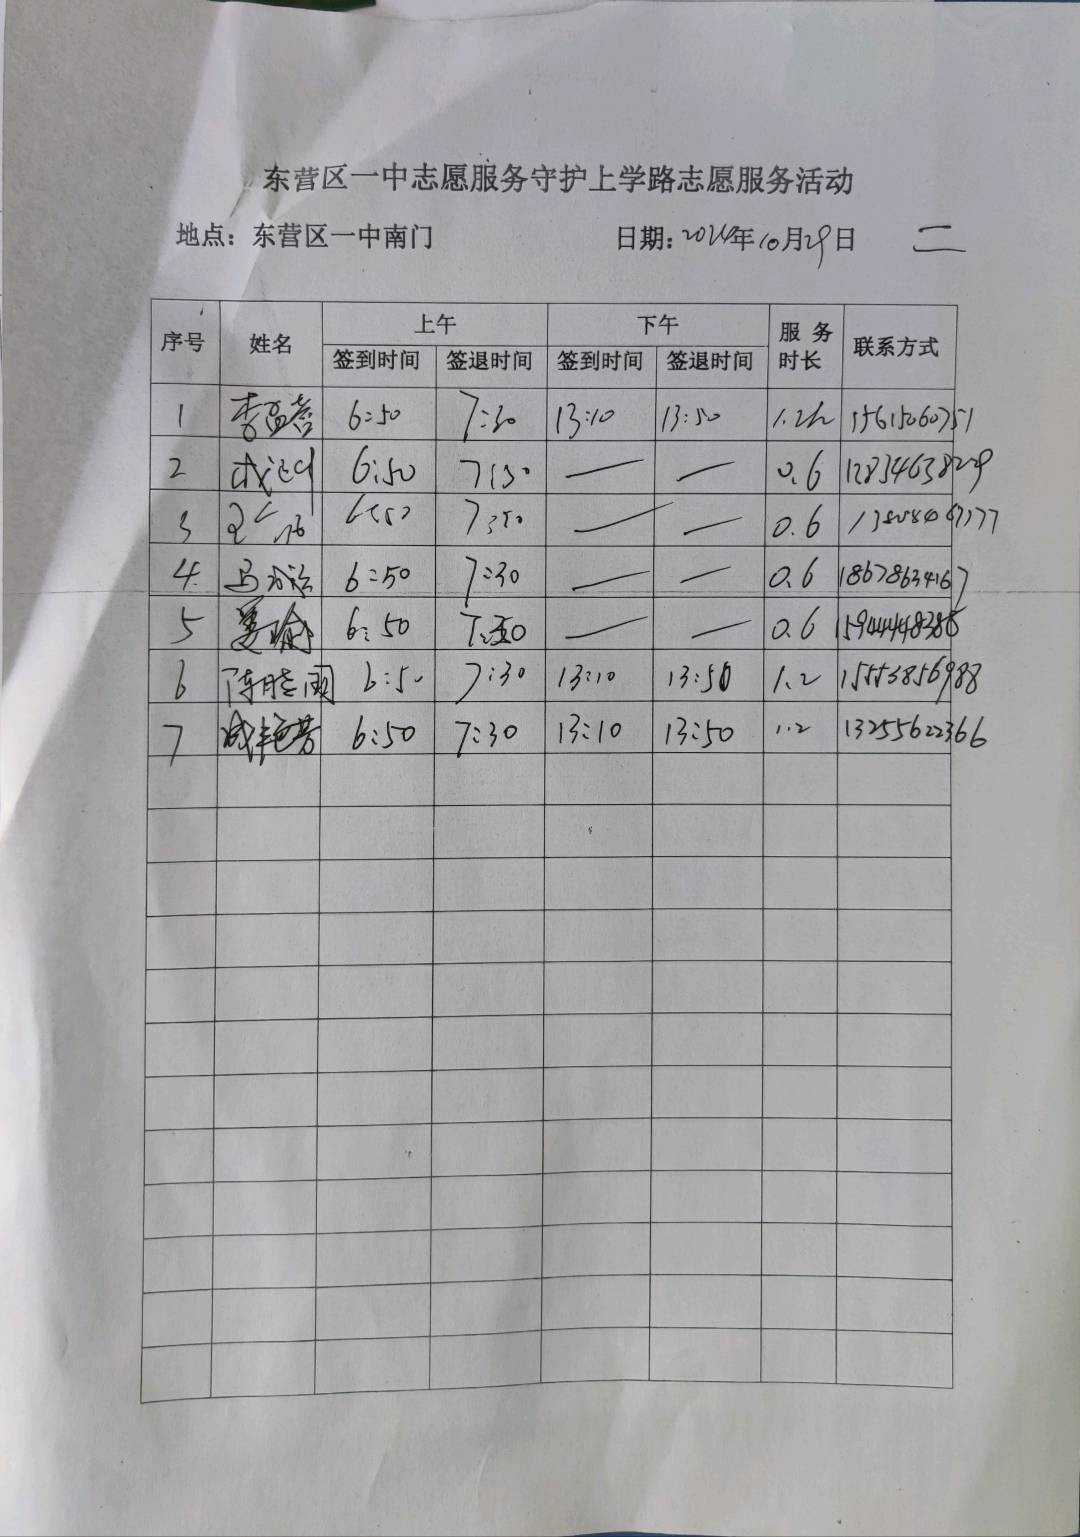 东营区一中志愿服务守护上学路志愿服务活动
地点：东营区一中南门 日期：2024年10月29日 二
序号 姓名 上午 下午 服务时长 联系方式
签到时间 签退时间 签到时间 签退时间
1 李 6:50 7:30 13:10 13:50 1.2h 15615060751
2 6:50 7:30 — — 0.6
3 王 6:50 7:30 — — 0.6
4 马 6:50 7:30 — — 0.6 18678634167
5 姜瑜 6:50 7:30 — — 0.6
6 陈晓雨 6:50 7:30 13:10 13:50 1.2 15553856988
7 6:50 7:30 13:10 13:50 1.2 13255622366